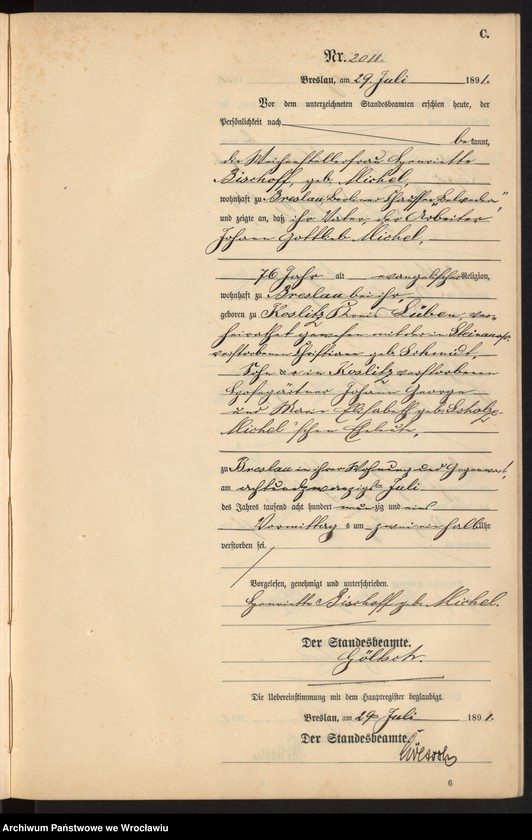 C.
Nr. 2011.
Breslau, am 29 Juli 1891.
Vor dem unterzeichneten Standesbeamten erschien heute, der
Persönlichkeit nach
bekannt,
die Weichenstellerfrau Henriette
Bischoff, geb. Michel,
wohnhaft zu Breslau, Berliner Chaussee
und zeigte an, daß ihr Vater, der Arbeiter
Johann Gottlieb Michel,
76 Jahr alt evangelischer Religion,
wohnhaft zu Breslau bei ihr,
geboren zu Koslitz Kreis Lüben, ver-
heirathet gewesen mit der in Steinau a/O.
verstorbenen Christiane geb. Schmidt,
Sohn der in Koslitz verstorbenen
Hofegärtner Johann George
und Marie Elisabeth geb. Scholz-
Michel'schen Eheleute,
zu Breslau in ihrer Wohnung und Gegenwart,
am achtundzwanzigsten Juli
des Jahres tausend acht hundert neunzig und eins
Vormittags um zwei ein halb Uhr
verstorben sei.
Vorgelesen, genehmigt und unterschrieben.
Henriette Bischoff geb. Michel.
Der Standesbeamte.
Die Uebereinstimmung mit dem Hauptregister beglaubigt.
Breslau, am 29ten Juli 1891.
Der Standesbeamte.
6
Archiwum Państwowe we Wrocławiu